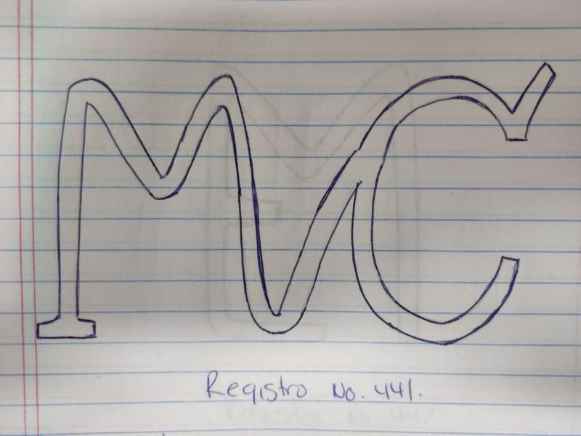 MC
Registro No. 441.